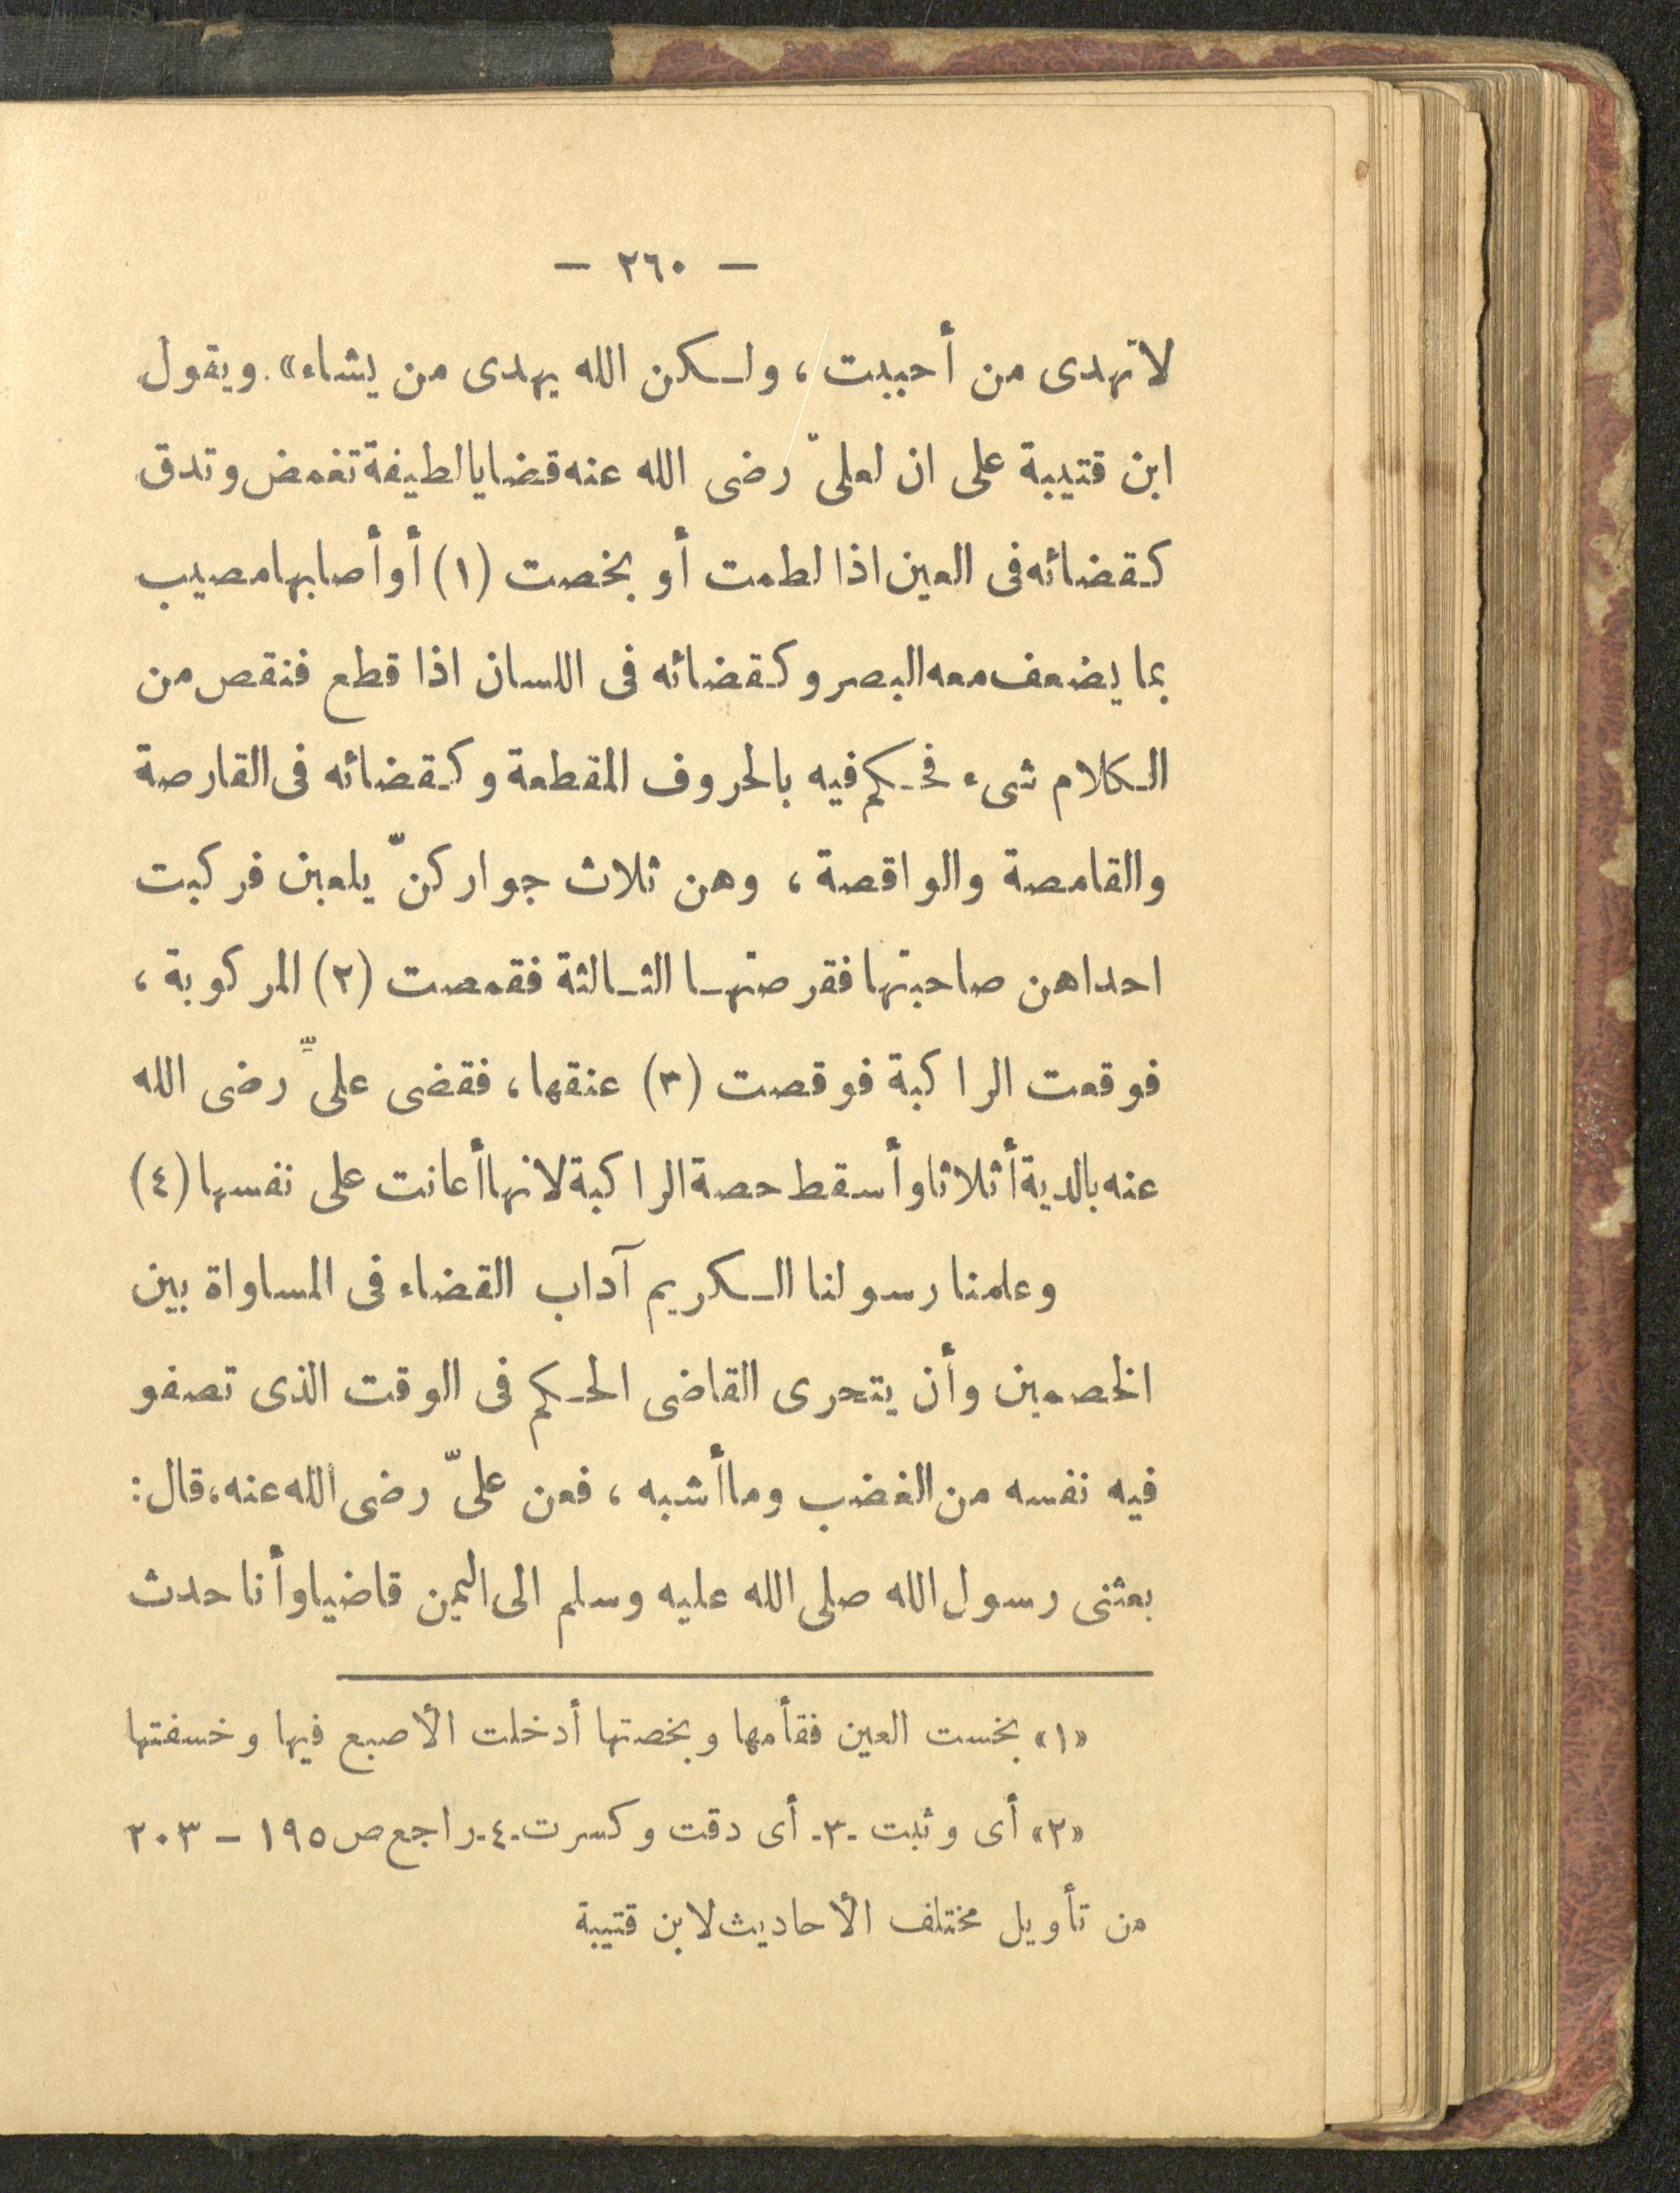 — ٢٦٠ —
لا تهدى من أحببت ، ولكن الله يهدى من يشاء» . ويقول
ابن قتيبة على ان لعلىّ رضى الله عنه قضايا لطيفة تغمض وتدق
كقضائه فى العين اذا لطمت أو بخصت (١) أو أصابها مصيب
بما يضعف معه البصر وكقضائه فى اللسان اذا قطع فنقص من
الكلام شىء فحكم فيه بالحروف المقطعة وكقضائه فى القارصة
والقامصة والواقصة ، وهن ثلاث جوار كنّ يلعبن فركبت
احداهن صاحبتها فقرصتها الثالثة فقمصت (٢) المركوبة ،
فوقعت الراكبة فوقصت (٣) عنقها ، فقضى علىٌّ رضى الله
عنه بالدية أثلاثا وأسقط حصة الراكبة لانها أعانت على نفسها (٤)
وعلمنا رسولنا الكريم آداب القضاء فى المساواة بين
الخصمين وأن يتحرى القاضى الحكم فى الوقت الذى تصفو
فيه نفسه من الغضب وما أشبه ، فعن علىّ رضى الله عنه ، قال :
بعثنى رسول الله صلى الله عليه وسلم الى اليمن قاضيا وأنا حدث
«١» بخست العين فقأمها وبخصتها أدخلت الأصبع فيها وخسفتها
«٢» أى وثبت -٣- أى دقت وكسرت -٤- راجع ص ١٩٥ – ٢٠٣
من تأويل مختلف الأحاديث لابن قتيبة